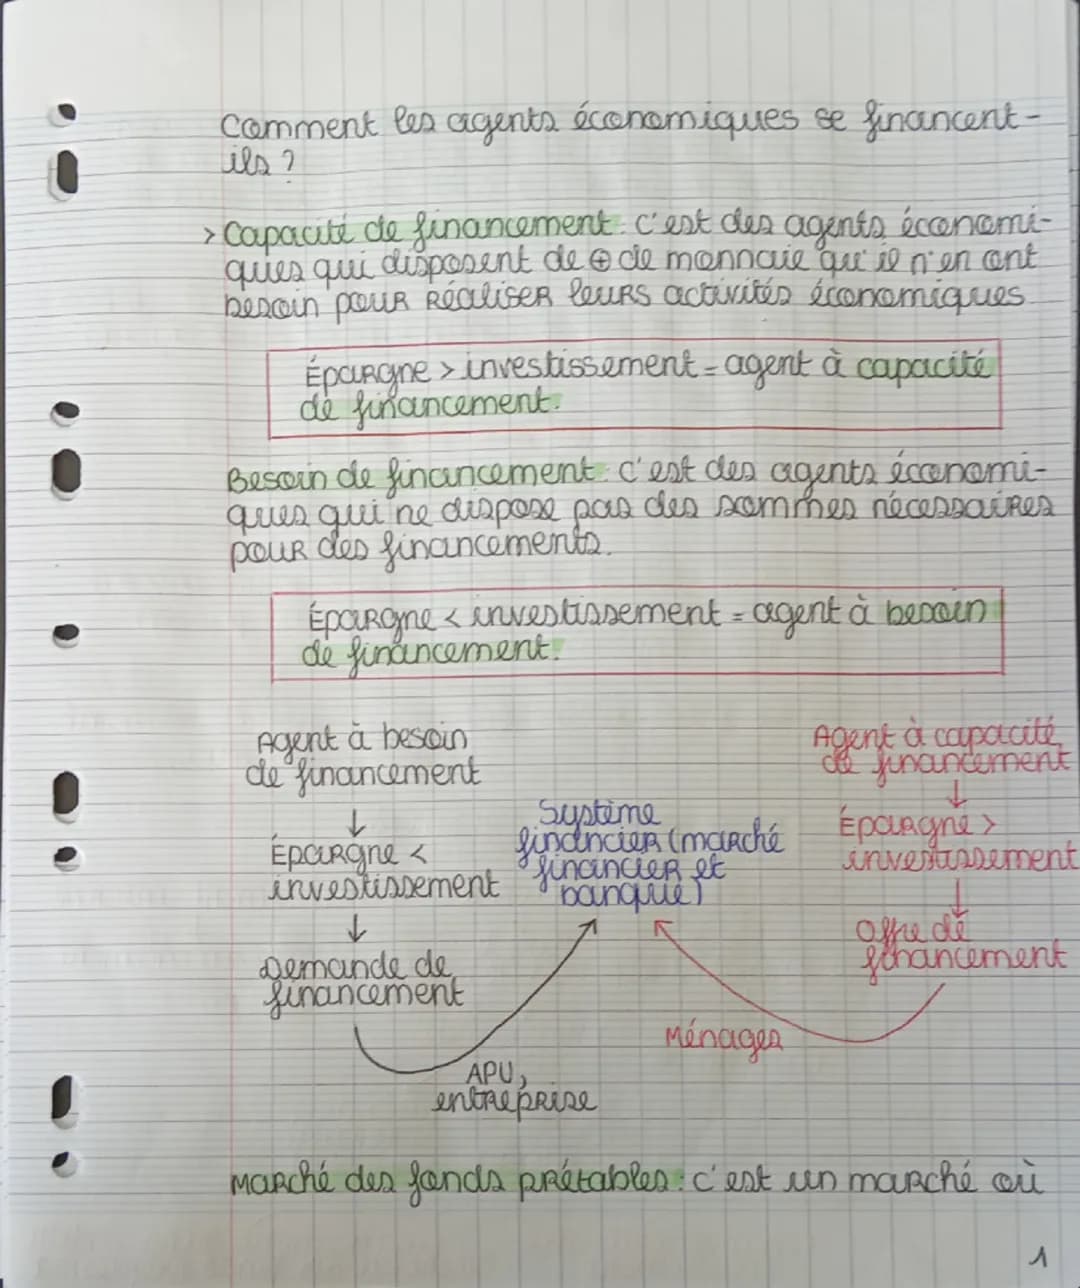 Comment les agents économiques se financent-
ils ?
> Capacité de financement : c'est des agents économi-
ques qui disposent de ⊕ de monnaie qu'il n'en ont
besoin pour réaliser leurs activités économiques
Épargne > investissement = agent à capacité
de financement.
Besoin de financement : c'est des agents économi-
ques qui ne dispose pas des sommes nécessaires
pour des financements.
Épargne < investissement = agent à besoin
de financement.
Agent à besoin
de financement
↓
Épargne <
investissement
↓
Demande de
financement
APU,
entreprise
Système
financier (marché
financier et
banque)
Agent à capacité
de financement
↓
Épargne >
investissement
↓
Offre de
financement
Ménages
Marché des fonds prêtables : c'est un marché où
1